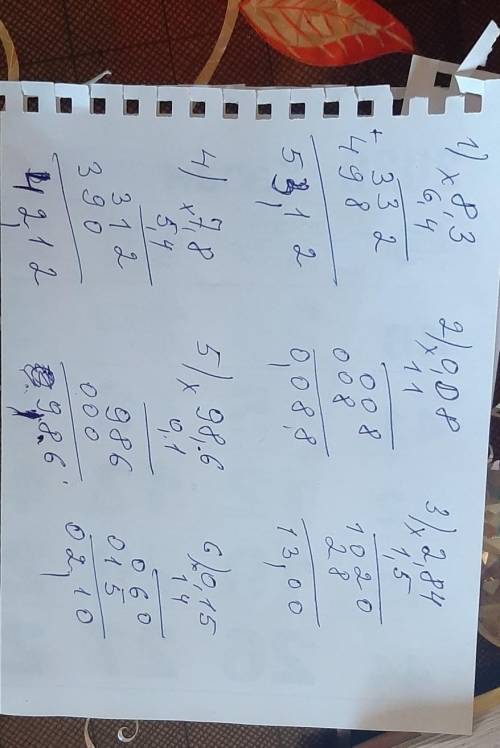 1) x 8,3
6,4
+ 332
498
53,12
2) x 0,08
11
008
008
0,08,8
3) x 2,84
1,5
1020
28
13,00
4) x 7,8
5,4
312
390
42,12
5) x 98,6
0,1
986
000
9,86
6) x 0,15
14
060
015
02,10